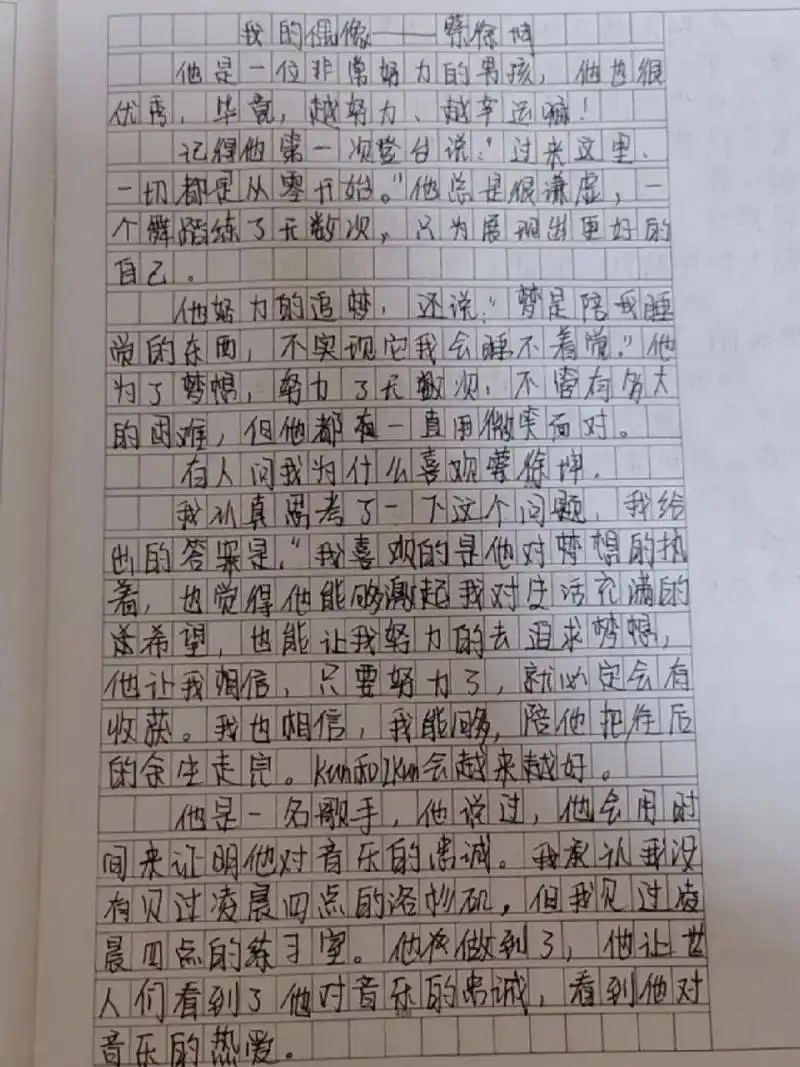 我的偶像——蔡徐坤
他是一位非常努力的男孩，他也很
优秀，毕竟，越努力、越幸运嘛！
记得他第一次登台说：“过来这里，
一切都是从零开始。”他总是很谦虚，一
个舞蹈练了无数次，只为展现出更好的
自己。
他努力的追梦，还说：“梦是陪我睡
觉的东西，不实现它我会睡不着觉。”他
为了梦想，努力了无数次，不管有多大
的困难，但他都有一直用微笑面对。
有人问我为什么喜欢蔡徐坤.
我认真思考了一下这个问题，我给
出的答案是，“我喜欢的是他对梦想的执
着，也觉得他能够激起我对生活充满的
希望，也能让我努力的去追求梦想，
他让我相信，只要努力了，就必定会有
收获。我也相信，我能够，陪他把往后
的余生走完。kun和Ikun会越来越好。
他是一名歌手，他说过，他会用时
间来证明他对音乐的忠诚。我承认我没
有见过凌晨四点的洛杉矶，但我见过凌
晨四点的练习室。他做到了，他让世
人们看到了他对音乐的忠诚，看到他对
音乐的热爱。